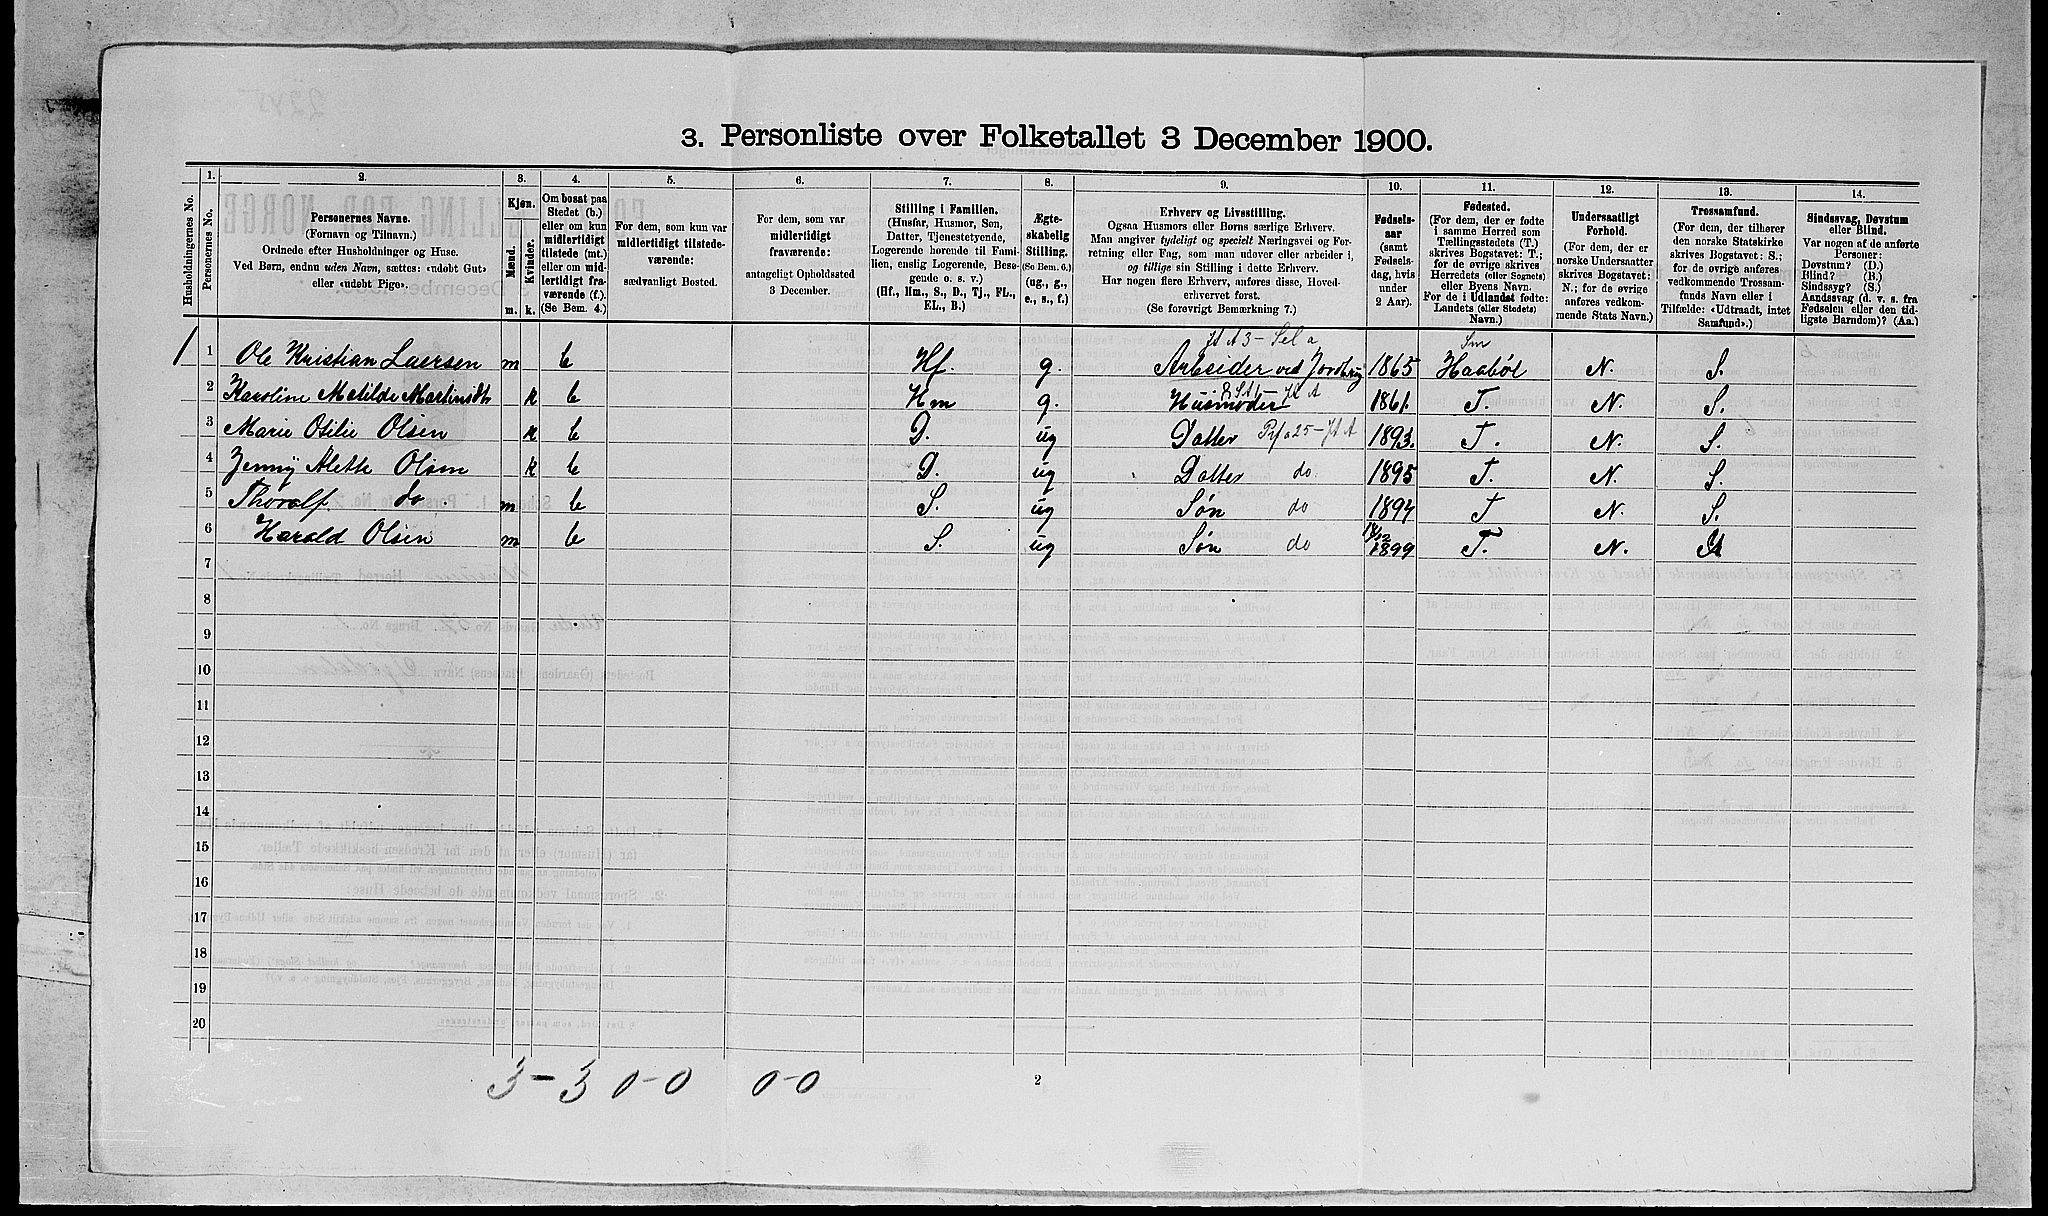 3. Personliste over Folketallet 3 December 1900.
Husholdningernes No.
1. Personernes No.
2. Personernes Navne.
(Fornavn og Tilnavn.)
Ordnede efter Husholdninger og Huse.
Ved Børn, endnu uden Navn, sættes: «udøbt Gut»
eller «udøbt Pige».
3. Kjøn.
Mænd. m.
Kvinder. k.
4.
Om bosat paa
Stedet (b.)
eller om kun
midlertidigt
tilstede (mt.)
eller om mid-
lertidigt fra-
værende (f.).
(Se Bem. 4.)
5.
For dem, som kun var
midlertidigt tilstede-
værende:
sædvanligt Bosted.
6.
For dem, som var
midlertidigt
fraværende:
antageligt Opholdssted
3 December.
7.
Stilling i Familien.
(Husfar, Husmor, Søn,
Datter, Tjenestetyende,
Logerende hørende til Fami-
lien, enslig Logerende, Besø-
gende o. s. v.)
(Hf., Hm., S., D., Tj., FL.,
EL., B.)
8.
Ægte-
skabelig
Stilling.
(Se Bem. 6.)
(ug., g.,
e., s., f.)
9.
Erhverv og Livsstilling.
Ogsaa Husmors eller Børns særlige Erhverv.
Man angiver tydeligt og specielt Næringsvei og For-
retning eller Fag, som man udøver eller arbeider i,
og tillige sin Stilling i dette Erhverv.
Har nogen flere Erhverv, anføres disse, Hoved-
erhvervet først.
(Se forøvrigt Bemærkning 7.)
10.
Fødsels-
aar
(samt
Fødsels-
dag, hvis
under
2 Aar).
11.
Fødested.
(For dem, der er fødte
i samme Herred som
Tællingsstedets (T.)
skrives Bogstavet: T.;
for de øvrige skrives
Herredets (eller Sognets)
eller Byens Navn.
For de i Udlandet fødte:
Landets (eller Stedets)
Navn.)
12.
Undersaatligt
Forhold.
(For dem, der er
norske Undersaatter
skrives Bogstavet:
N.; for de øvrige
anføres vedkom-
mende Stats Navn.)
13.
Trossamfund.
(For dem, der tilhører
den norske Statskirke
skrives Bogstavet: S.;
for de øvrige anføres
vedkommende Trossam-
funds Navn eller i
Tilfælde: «Udtraadt, intet
Samfund».)
14.
Sindssvag, Døvstum
eller Blind.
Var nogen af de anførte
Personer:
Døvstum? (D.)
Blind? (B.)
Sindssyg? (S.)
Aandssvag (d. v. s. fra
Fødselen eller den tid-
ligste Barndom)? (Aa.)
1 1 Ole Kristian Laersen m b Hf. g. Arbeider ved Jordbrug 1865 Haabøl N. S.
2 Karoline Matilde k b Hm g. Husmoder 1861. T. N. S.
3 Marie Otilie Olsen k b D. ug Datter 1893. T. N. S.
4 Jenny Alette Olsen k b D. ug Datter do. 1895 T. N. S.
5 Thoralf do m b S. ug Søn do 1897 T N. S.
6 Harald Olsen m b S. ug Søn do 1899 T. N. S
7
8
9
10
11
12
13
14
15
16
17
18
19
20
3 - 3 0-0 0-0
2